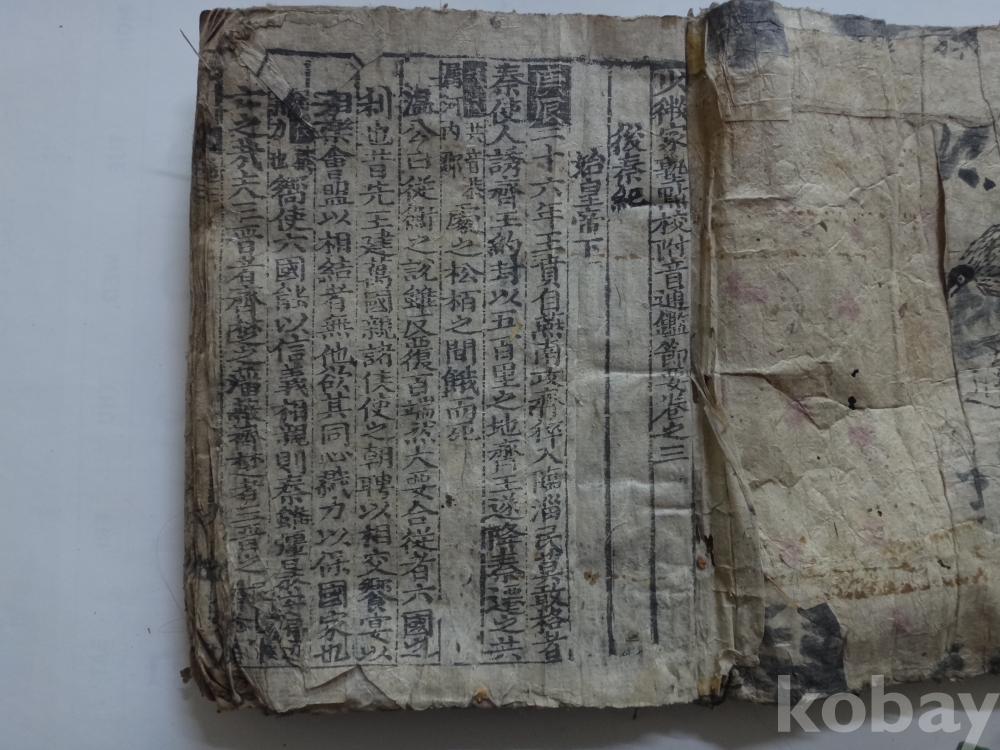 少微家塾點校附音通鑑節要卷之三
後秦紀
始皇帝下
庚辰二十六年王賁自燕南攻齊猝入臨淄民莫敢格者
秦使人誘齊王約封以五百里之地齊王遂降秦遷之共
共音恭
河內郡
處之松栢之間餓而死
溫公曰從衡之說雖反覆百端然大要合從者六國之
利也昔先王建萬國親諸侯使之朝聘以相交饗宴以
相樂會盟以相結者無他欲其同心戮力以保國家也
嚮使六國能以信義相親則秦雖彊暴安得
三晉者齊楚之藩蔽齊楚者三晉之
kobay